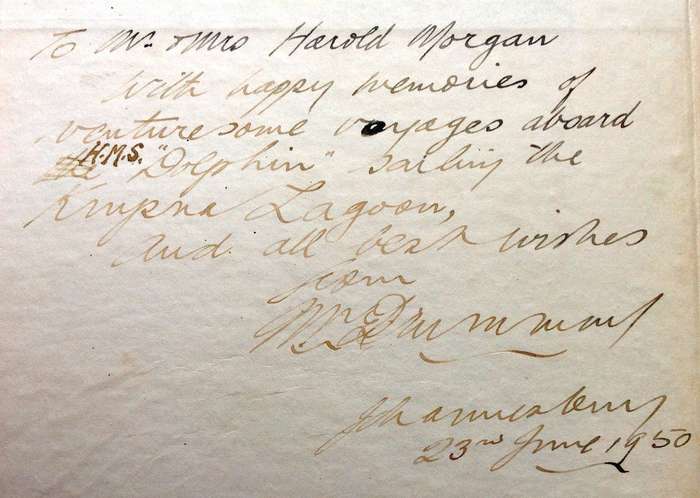 To Mr. & Mrs Harold Morgan
with happy memories of
venturesome voyages aboard
the H.M.S. "Dolphin" sailing the
Knysna Lagoon,
and all best wishes
from
Drummond
Johannesburg
23rd June, 1950